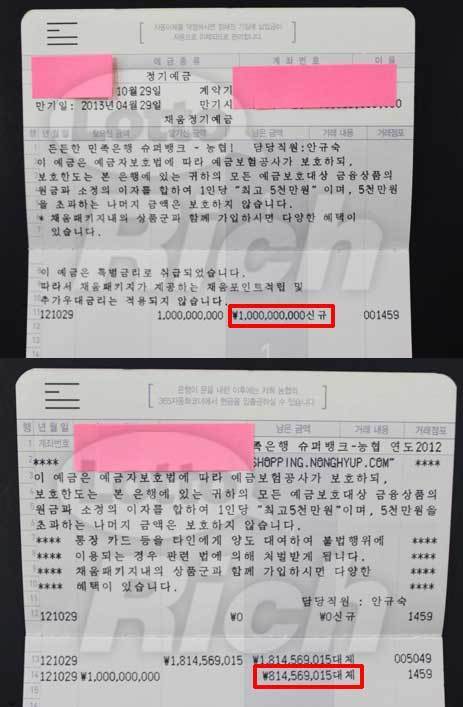 자동이체를 약정하시면 편리한 기일에 납입금이
자동으로 이체되므로 편리합니다.
예금종류 계좌번호 이율
정기예금
10월29일 계약기
만기일: 2013년04월29일 만기시
채움정기예금
년월일 찾으신 금액 맡기신 금액 남은 금액 거래 내용 거래점포
든든한 민족은행 슈퍼뱅크 - 농협! 담당직원:안규숙
이 예금은 예금자보호법에 따라 예금보험공사가 보호하되,
보호한도는 본 은행에 있는 귀하의 모든 예금보호대상 금융상품의
원금과 소정의 이자를 합하여 1인당 "최고 5천만원"이며, 5천만원
을 초과하는 나머지 금액은 보호하지 않습니다.
* 채움패키지내의 상품군과 함께 가입하시면 다양한 혜택이
있습니다.
이 예금은 특별금리로 취급되었습니다.
따라서 채움패키지가 제공하는 채움포인트적립 및
추가우대금리는 적용되지 않습니다.
121029 1,000,000,000 ₩1,000,000,000신규 001459
Lotto
Rich
은행이 문을 내린 이후에는 저희 농협의
365자동화코너에서 현금을 입출금하실 수 있습니다.
행 년월일 남은 금액 거래 내용 거래점포
1 계좌번호 족은행 슈퍼뱅크-농협 연도2012
2 **** SHOPPING.NONGHYUP.COM" ****
이 예금은 예금자보호법에 따라 예금보험공사가 보호하되,
보호한도는 본 은행에 있는 귀하의 모든 예금보호대상 금융상품의
원금과 소정의 이자를 합하여 1인당 "최고5천만원"이며, 5천만원을
초과하는 나머지 금액은 보호하지 않습니다.
**** 통장 카드 등을 타인에게 양도 대여하여 불법행위에 ****
**** 이용되는 경우 관련 법에 의해 처벌받게 됩니다. ****
**** 채움패키지내의 상품군과 함께 가입하시면 다양한 ****
**** 혜택이 있습니다. ****
담당직원 : 안규숙
12 121029 ₩0 ₩0신규 1459
13 121029 ₩1,814,569,015 ₩1,814,569,015대체 005049
14 121029 ₩1,000,000,000 ₩814,569,015대체 1459
Lotto
Rich